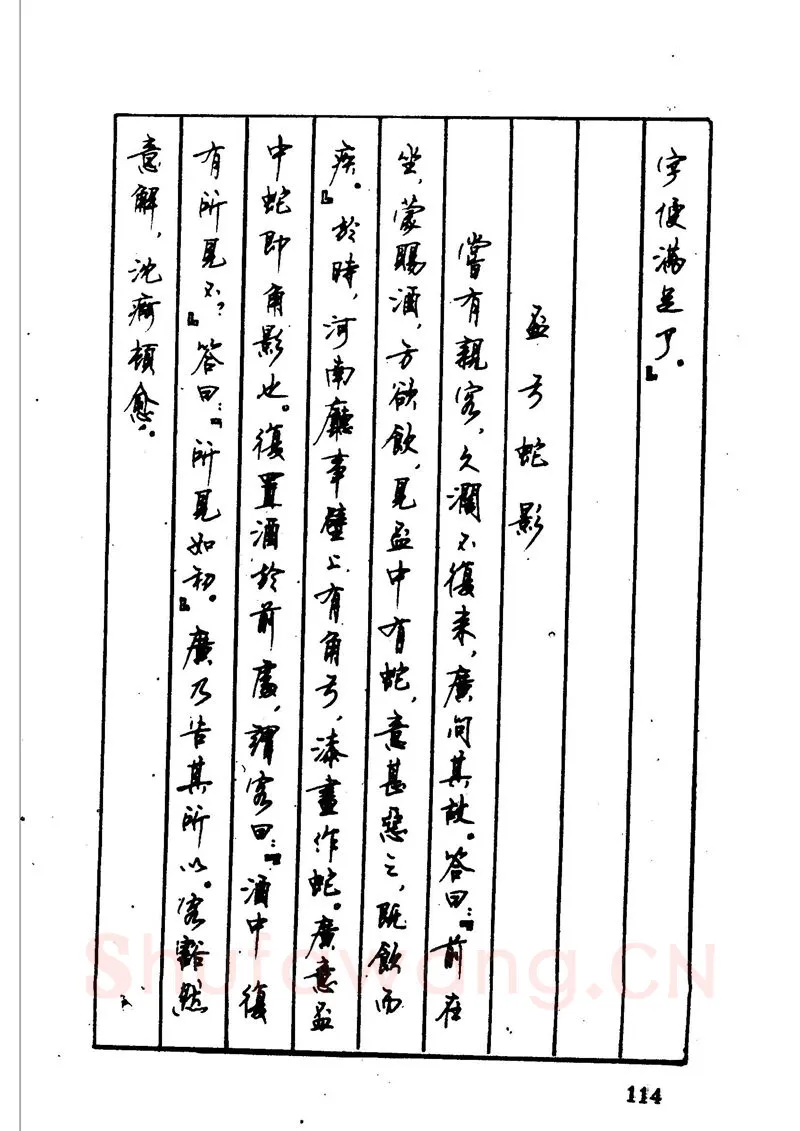 字便滿足了。』
盃弓蛇影
嘗有親客，久濶不復来，廣问其故。答曰：『前在
坐，蒙賜酒，方欲飲，見盃中有蛇，意甚惡之，既飲而
疾。』於時，河南廳事壁上有角弓，漆畫作蛇。廣意盃
中蛇即角影也。復置酒於前處，謂客曰：『酒中復
有所見不？』答曰：『所見如初。』廣乃告其所以。客豁然
意解，沈疴頓愈。
114
Shufawang.CN